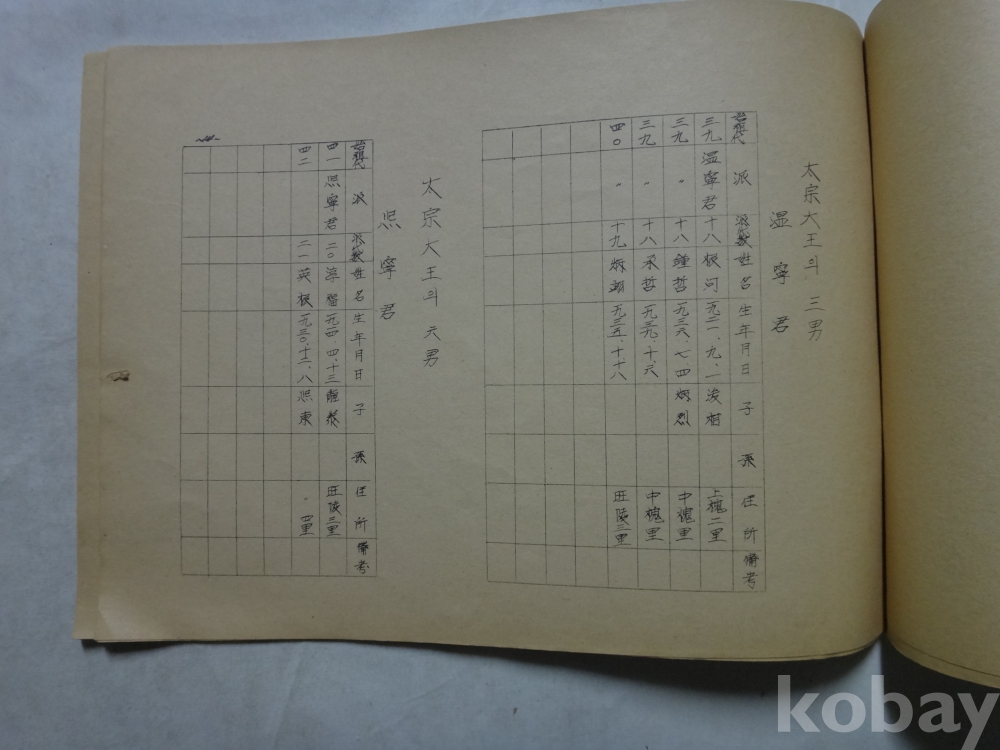 太宗大王의 三男
温寧君
始祖代 派 派代數 姓名 生年月日 子 系 住所 備考
三九 温寧君 十八 根河 一九二一、九、一 浚相 上槐二里
三九 〃 十八 鍾哲 一九三六、七、四 炳烈 中槐里
三九 〃 十八 承哲 一九三九、十、六 中槐里
四〇 〃 十九 炳 一九三五、十、十八 旺陵三里
太宗大王의 六男
熙寧君
始祖代 派 派代數 姓名 生年月日 子 系 住所 備考
四一 熙寧君 二〇 淳 一九一四、四、十三 旺陵三里
四二 二一 英根 一九三〇、十二、八 熙東 〃 四里
kobay